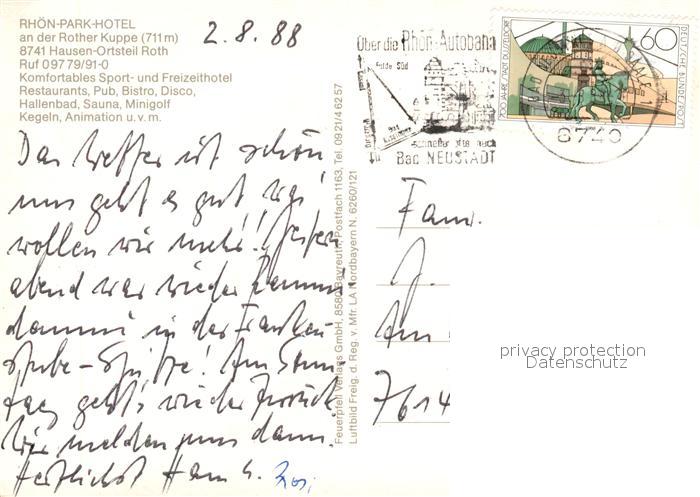 RHÖN-PARK-HOTEL
an der Rother Kuppe (711 m)
8741 Hausen-Ortsteil Roth
Ruf 0 97 79/91-0
Komfortables Sport- und Freizeithotel
Restaurants, Pub, Bistro, Disco,
Hallenbad, Sauna, Minigolf
Kegeln, Animation u.v.m.
2.8.88
Das Wetter ist schön,
uns geht es gut, was
wollen wir mehr! Gestern
abend war wieder
in der Franken
stube – Spitze! Am Sonn-
tag geht's wieder zurück.
Wir melden uns dann.
Herzlichst Hans G. Rosi
Feuerpfeil Verlags GmbH, 8580 Bayreuth, Postfach 1163, Tel. 09 21/4 62 57
Luftbild Freig. d. Reg. v. Mfr. LA Nordbayern N. 6260/121
Über die Rhön-Autobahn
Fulda Süd
schneller
nach
Bad NEUSTADT
8740
60
DEUTSCHE BUNDESPOST
700 JAHRE STADT DÜSSELDORF
Fam.
J.
Am
7614
privacy protection
Datenschutz